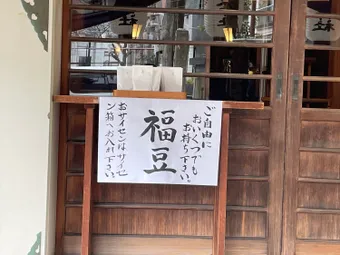 ご自由に
おいくつでも
お持ち下さい。
福豆
おサイセンはサイセ
ン箱へお入れ下さい。